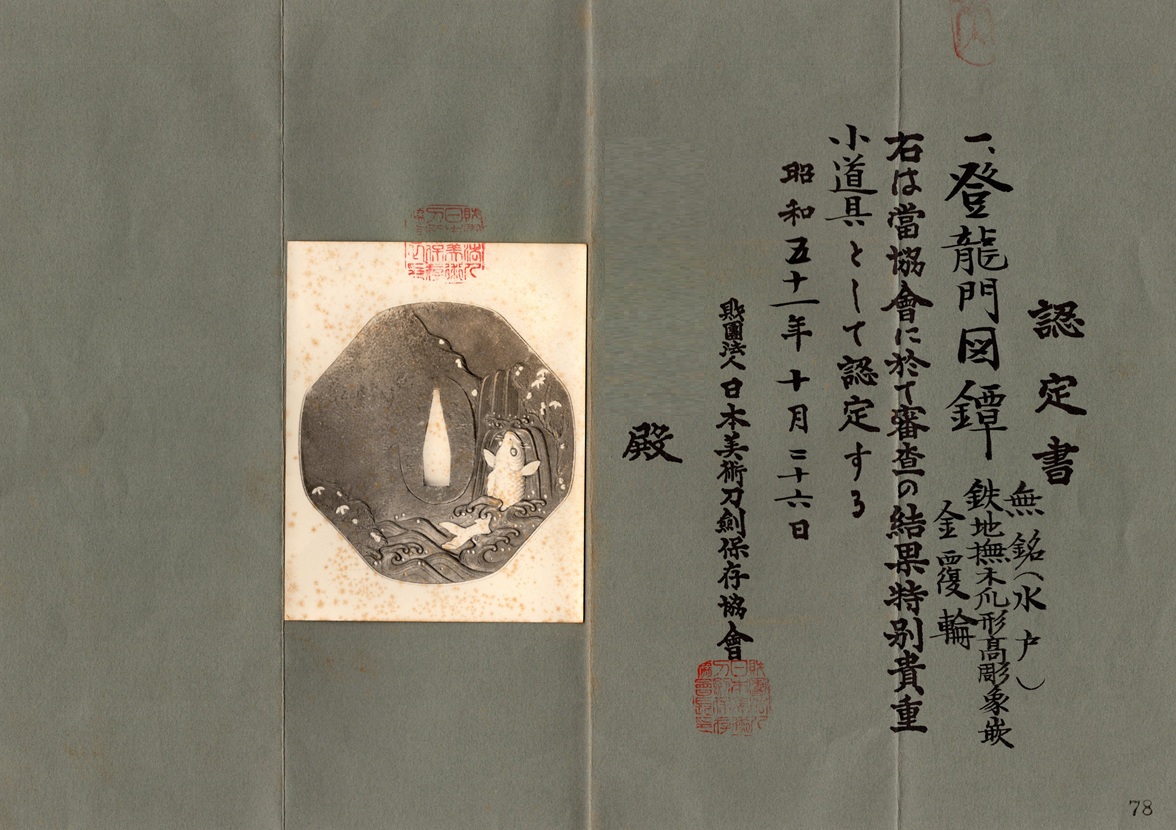 認定書
一、登龍門図鐔
無銘(水戸)
鉄地撫木瓜形高彫象嵌
金覆輪
右は當協會に於て審査の結果特別貴重
小道具として認定する
昭和五十一年十月二十六日
財團法人日本美術刀剣保存協會
殿
78